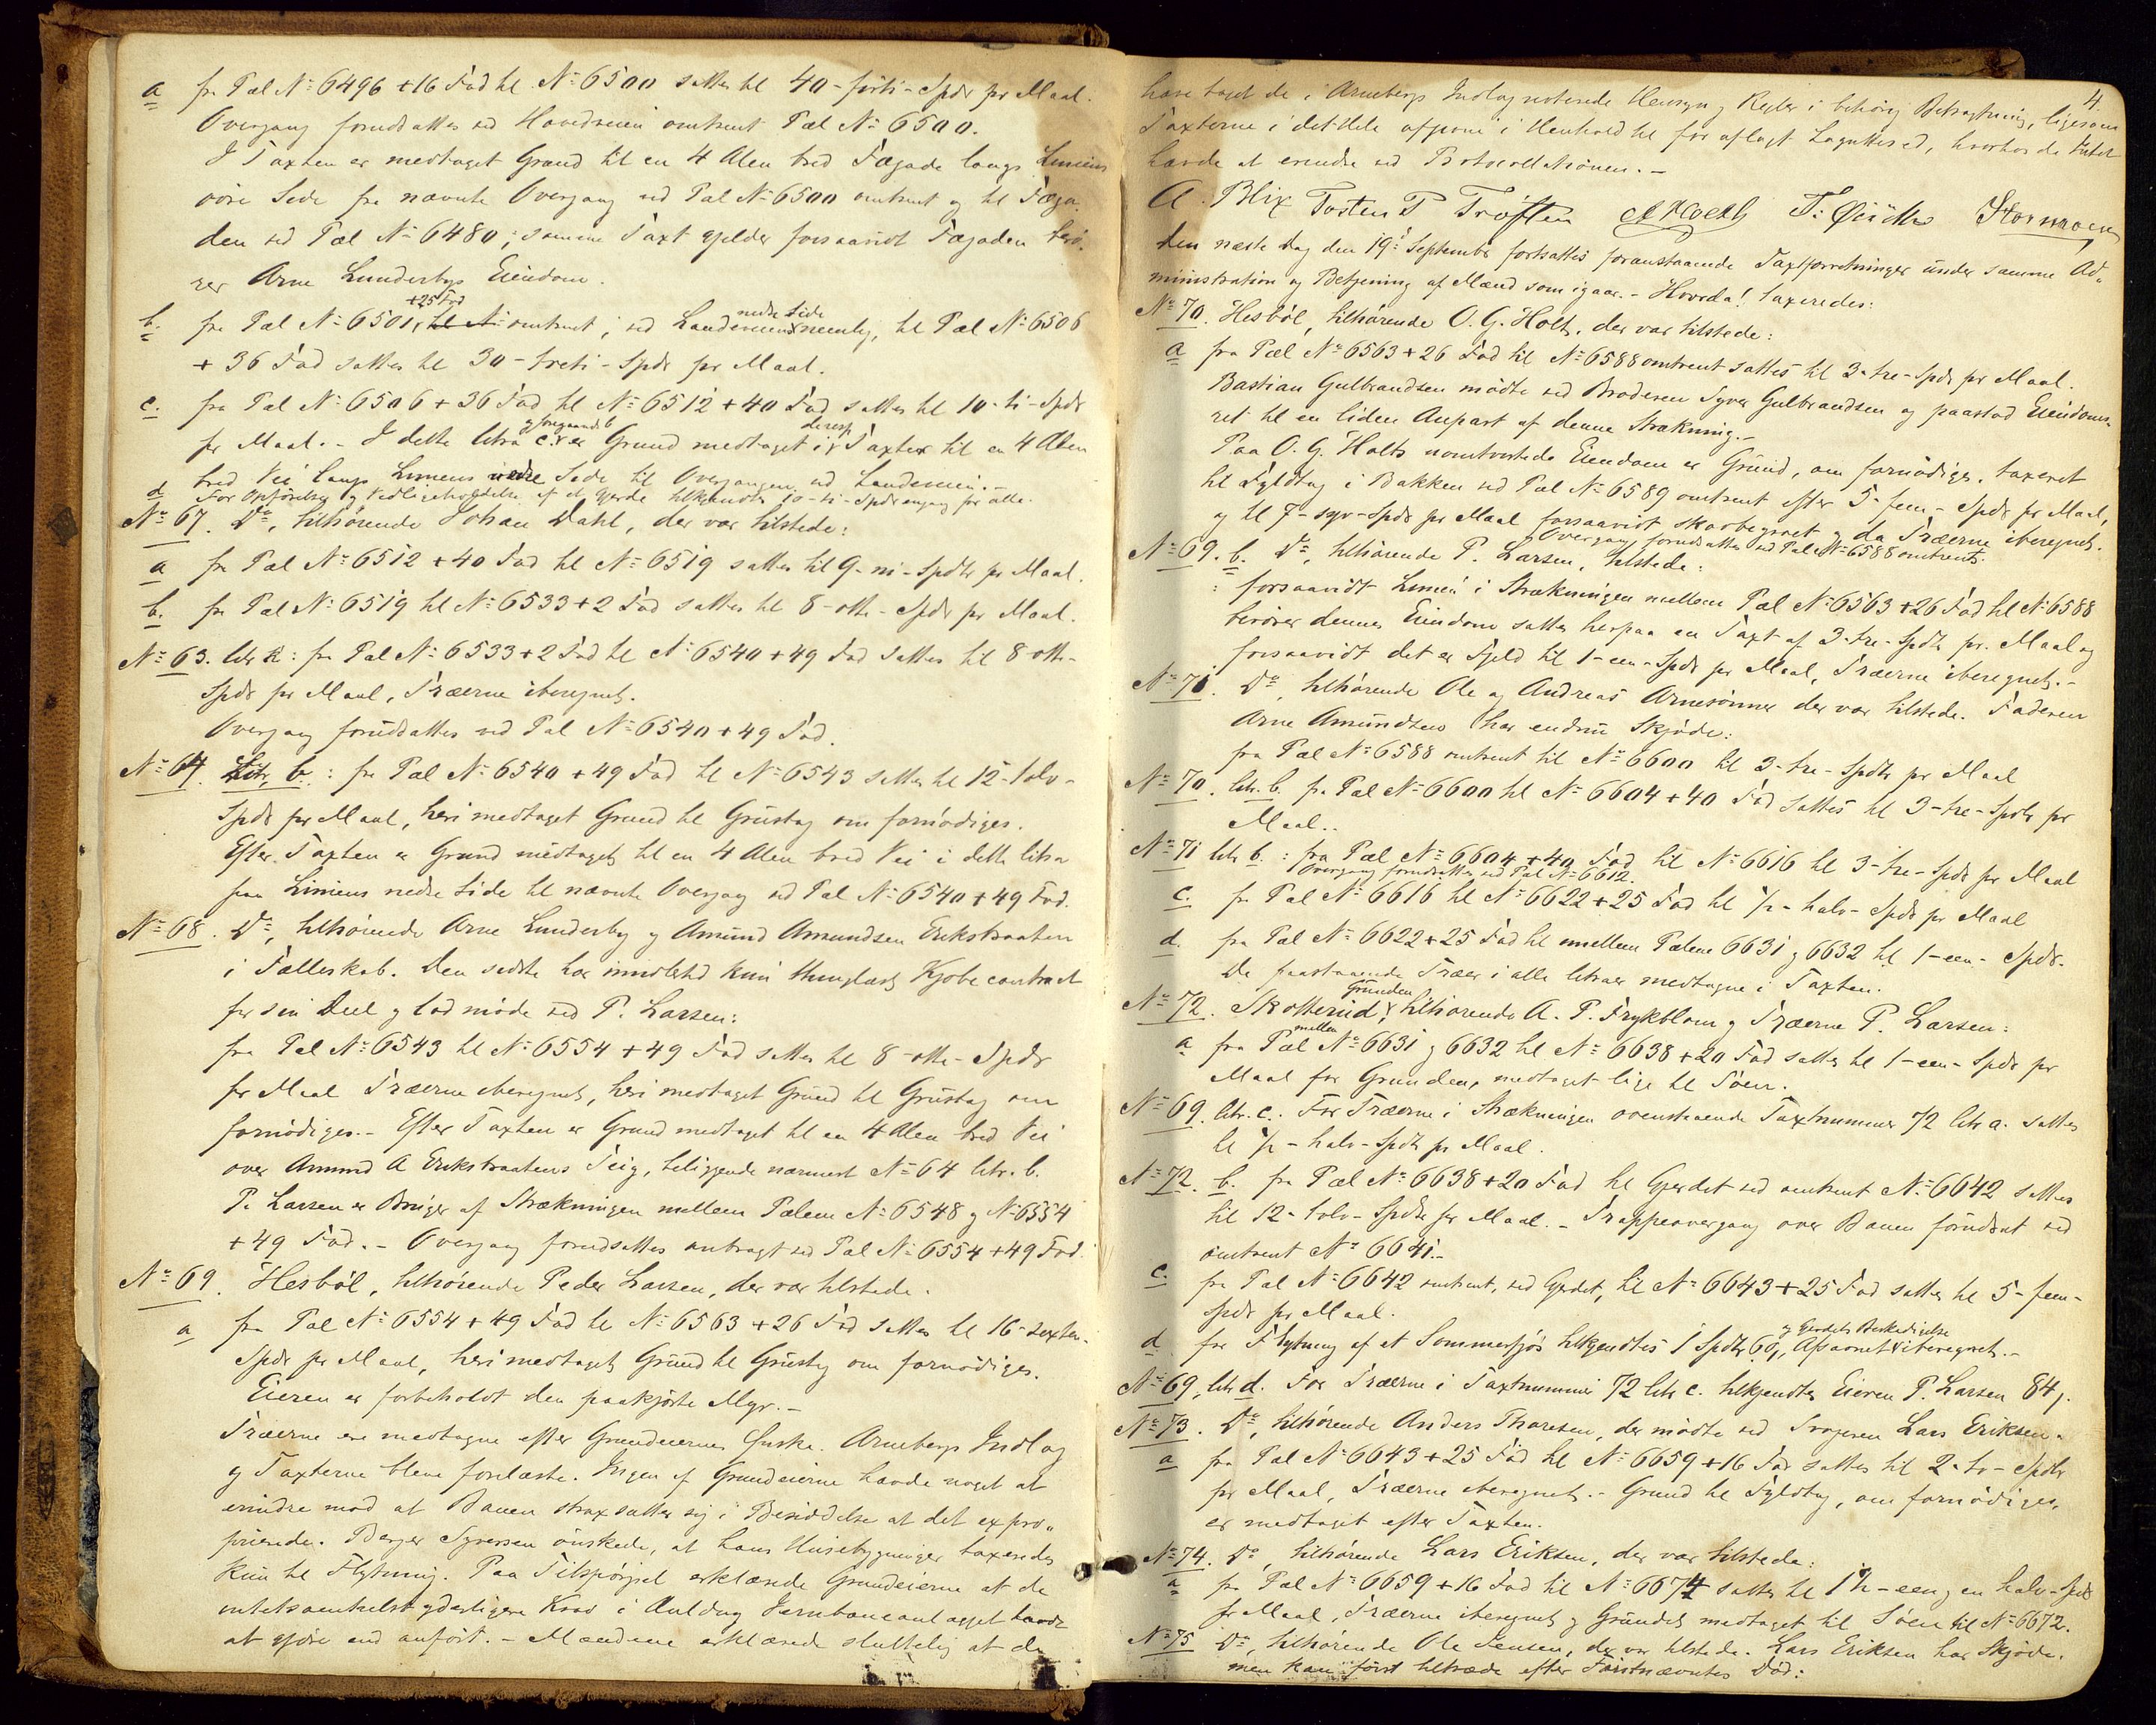 a fra Pæl No 6496 + 16 Fod til No 6500 sattes til 40 - förti - Spdr pr Maal.
Overgang forudsattes ved Hovedveien omtrent Pæl No 6500.
I Taxten er medtaget Grund til en 4 Alen bred Fægade langs Liniens
övre Side fra nævnte Overgang ved Pæl No 6500 omtrent og til Fæga-
den ved Pæl No 6480; samme Taxt gjelder forsaavidt Fægaden berö-
rer Arne Lundersbys Eiendom.
b. fra Pæl No 6501 +25 Fod omtrent, ved Landeveiens nedre Side nemlig, til Pæl No 6506
+ 36 Fod sattes til 30 - treti - Spdr pr Maal.
c. fra Pæl No 6506 + 36 Fod til No 6512 + 40 Fod sattes til 10 - ti - Spdr
pr Maal. - I dette litra c. og foregaaende b er Grund medtaget i deresp Taxter til en 4 Alen
bred Vei langs Liniens nedre Side til Overgangen ved Landeveien. -
d For Opförelse og Vedligeholdelse af et Gjerde tilkjendtes 10 - ti - Spdr engang for alle.
No 67. Do, tilhörende Johan Dahl, der var tilstede:
a fra Pæl No 6512 + 40 Fod til No 6519 sattes til 9 - ni - Spdlr pr Maal.
b. fra Pæl No 6519 til No 6533 + 2 Fod sattes til 8 - otte - Spdr pr Maal.
No 63. litr k: fra Pæl No 6533 + 2 Fod til No 6540 + 49 Fod sattes til 8 otte-
Spdr pr Maal, Træerne iberegnet.
Overgang forudsattes ved Pæl No 6540 + 49 Fod.
No 64. Litr. b.: fra Pæl No 6540 + 49 Fod til No 6543 sattes til 12 - tolv -
Spdr pr Maal, heri medtaget Grund til Grustag om fornödiges.
Efter Taxten er Grund medtaget til en 4 Alen bred Vei i dette litra
paa Liniens nedre Side til nævnte Overgang ved Pæl No 6540 + 49 Fod.
No 68. Do, tilhörende Arne Lundersby og Amund Amundsen Erikstraaten
i Fælleskab. Den sidste har imidlertid kun thinglæst Kjöbecontract
for sin Deel og lod möde ved P. Larsen:
fra Pæl No 6543 til No 6554 + 49 Fod sattes til 8 - otte - Spdr
pr Maal Træerne iberegnet, heri medtaget Grund til Grustag om
fornödiges. - Efter Taxten er Grund medtaget til en 4 Alen bred Vei
over Amund A Erikstraatens Teig, beliggende nærmest No 64 litr. b.
P. Larsen er Bruger af Strækningen mellem Pælene No 6548 og No 6554
+ 49 Fod. - Overgang forudsattes anbragt ved Pæl No 6554 + 49 Fod.
No 69. Hesböl, tilhörende Peder Larsen, der var tilstede.
a fra Pæl No 6554 + 49 Fod til No 6563 + 26 Fod sattes til 16 - sexten -
Spdr pr Maal, heri medtaget Grund til Grustag om fornödiges.
Eieren er forbeholdt den paakjörte Myr. -
Træerne ere medtagne efter Grundeiernes Önske. Arnebergs Indlag
og Taxterne bleve forelæste. Ingen af Grundeierne havde noget at
erindre mod at Banen strax satte sig i Besiddelse at det expro-
prierede. Berger Syversen önskede, at hans Huusebygninger taxeredes
kun til Flytning. Paa Tilspörgsel erklærede Grundeierne at de
intetsomhelst yderligere Krav i Anledning Jernbaneanlægget havde
at gjöre end anfört. - Mændene erklærede sluttelig at de
4.
have taget de i Arnebergs Indlag noterede Hensyn og Regler i behörig Betragtning, ligesom
Taxterne i det Hele afgivne i Henhold til för aflagt Lagrettesed, hvorhos de Intet
havde at erindre ved Protocollationen. -
A. Blix Torsten P Tröften
den næste Dag den 19de September fortsattes foranstaaende Taxtforretninger under samme Ad-
ministration og Betjening af Mænd som igaar. - Hvorda! taxeredes:
No 70. Hesböl, tilhörende O. G. Holt, der var tilstede:
a fra Pæl No 6563 + 26 Fod til No 6588 omtrent sattes til 3 - tre - Spdr pr Maal.
Bastian Gulbrandsen mödte ved Broderen Syver Gulbrandsen og paastod Eiendoms-
ret til en liden Anpart af denne Strækning. -
Paa O. G. Holts uomtvistede Eiendom er Grund, om fornödiges, taxeret
til Fyldtag i Bakken ved Pæl No 6589 omtrent efter 5 - fem - Spdr pr Maal,
og til 7 - syv - Spdr pr Maal forsaavidt skovbegroet og da Træerne iberegnet.
Overgang forudsattes ved Pæl No 6588 omtrent.
No 69. b. Do, tilhörende P. Larsen, tilstede:
: forsaavidt Linien i Strækningen mellem Pæl No 6563 + 26 Fod til No 6588
berörer dennes Eiendom sattes herpaa en Taxt af 3 - tre - Spdr pr. Maal og
forsaavidt det er Fjeld til 1 - een - Spdr pr Maal, Træerne iberegnet. -
No 71. Do, tilhörende Ole og Andreas Arnesönner der var tilstede. Faderen
Arne Amundsen har endnu Skjöde:
fra Pæl No 6588 omtrent til No 6600 til 3 - tre - Spdlr pr Maal
No 70. litr. b. fra Pæl No 6600 til No 6604 + 40 Fod sattes til 3 - tre - Spdlr pr
Maal..
No 71 litr b.: fra Pæl No 6604 + 40 Fod til No 6616 til 3 - tre - Spdr pr Maal
Overgang forudsattes ved Pæl No 6612.
c. fra Pæl No 6616 til No 6622 + 25 Fod til 1/2 - halv - Spdr pr Maal
d. fra Pæl No 6622 + 25 Fod til mellem Pælene 6631 og 6632 til 1 - een - Spdr.
De paastaaende Træer i alle litraer medtagne i Taxten.
No 72. Skotterud, Grunden tilhörende A. P. Frykblom og Træerne P. Larsen:
a fra Pæl mellem No 6631 og 6632 til No 6638 + 20 Fod sattes til 1 - een - Spdr pr
Maal for Grunden, medtaget lige til Söen.
No 69. litr. c. For Træerne i Strækningen ovenstaaende Taxtnummer 72 litr a. sattes
til 1/2 - halv - Spdr pr Maal.
No 72. b. fra Pæl No 6638 + 20 Fod til Gjerdet ved omtrent No 6642 sattes
til 12 - tolv - Spdlr pr Maal. - Trappeovergang over Banen forudsat ved
omtrent No 6641. -
c. fra Pæl No 6642 omtrent, ved Gjerdet, til No 6643 + 25 Fod sattes til 5 - fem -
Spdr pr Maal.
d for Flytning af et Sommerfjös tilkjendtes 1 Spdlr 60 ß, Afsavnet og Gjerdets Beskadigelse iberegnet. -
No 69, litr d. For Træerne i Taxtnummer 72 litr c. tilkjendtes Eieren P. Larsen 84 ß.
No 73. Do, tilhörende Anders Thoresen, der mödte ved Svogeren Lars Eriksen.
a fra Pæl No 6643 + 25 Fod til No 6659 + 16 Fod sattes til 2 - to - Spdlr
pr Maal, Træerne iberegnet. - Grund til Fyldtag, om fornödiges,
er medtaget efter Taxten.
No 74. Do, tilhörende Lars Eriksen, der var tilstede:
a fra Pæl No 6659 + 16 Fod til No 6674 sattes til 1 1/2 - een og en halv - Spdr
pr Maal, Træerne iberegnet og Grundet medtaget til Söen til No 6672.
No 75 Do, tilhörende Ole Jensen, der var tilstede. Lars Eriksen har Skjöde,
men kan först tiltræde efter Förstnævntes Död: